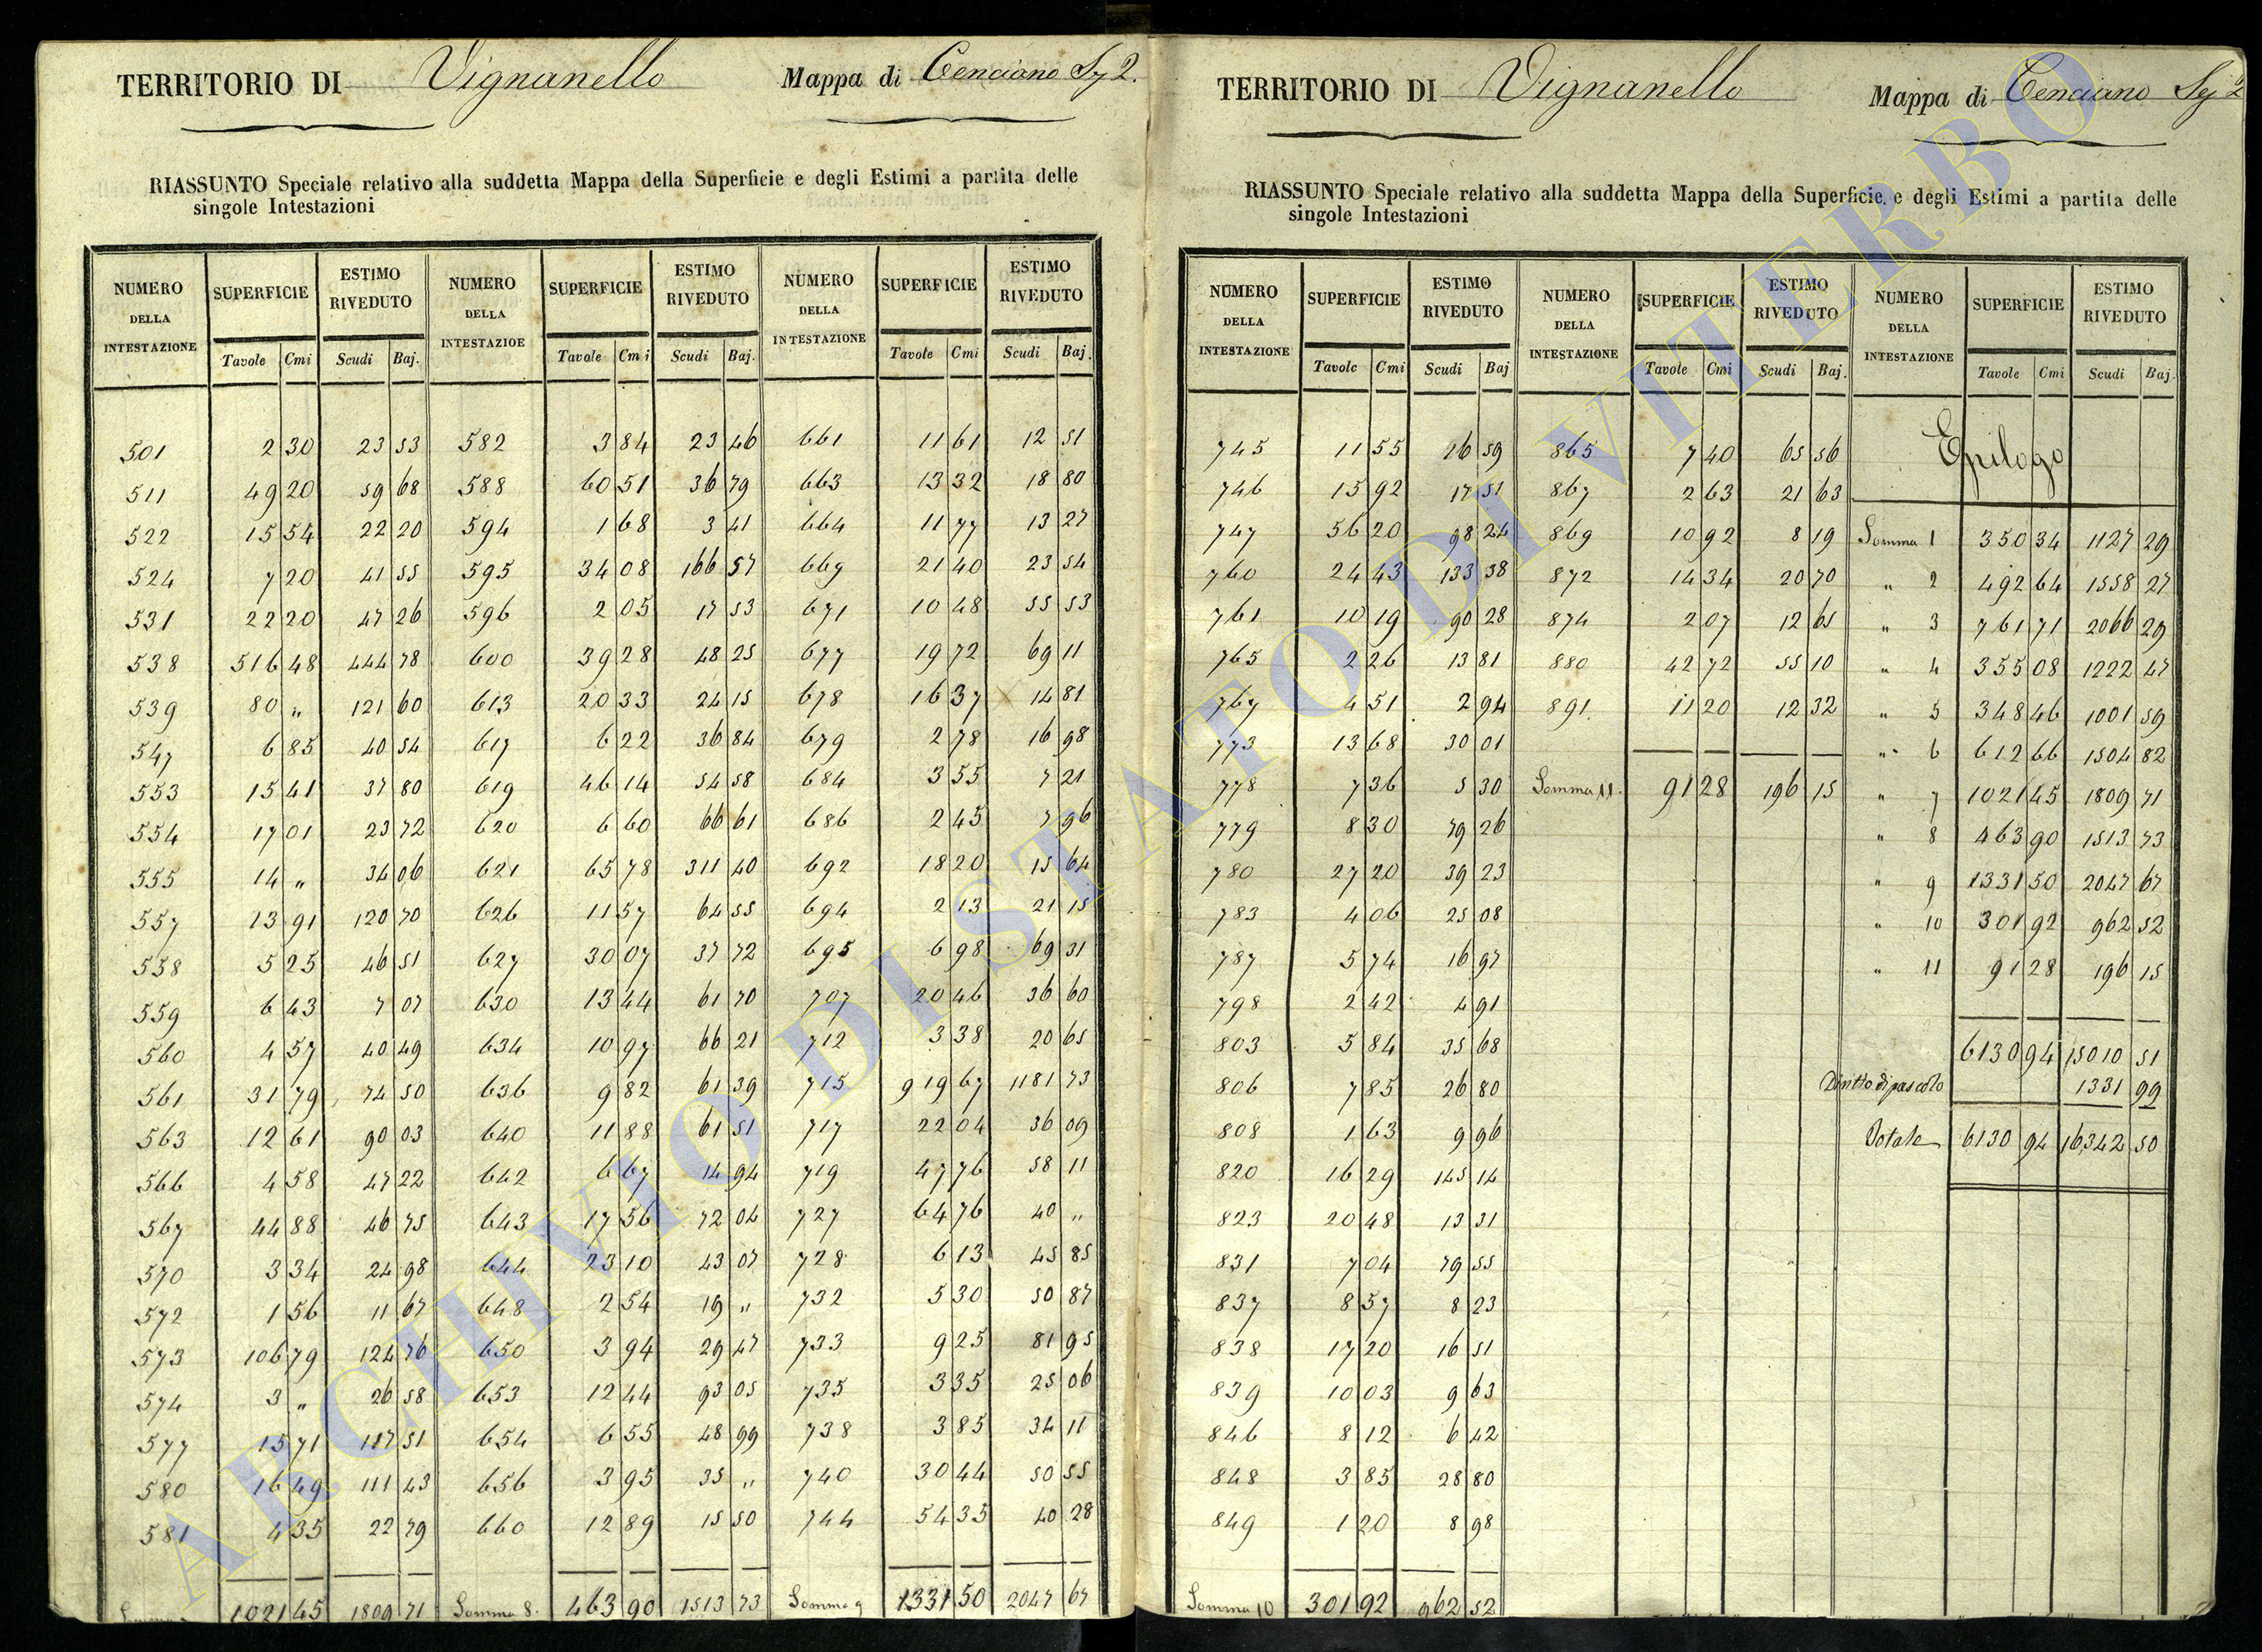 TERRITORIO DI Vignanello Mappa di Cenciano Sez 2.
RIASSUNTO Speciale relativo alla suddetta Mappa della Superficie e degli Estimi a partita delle
singole Intestazioni
NUMERO DELLA INTESTAZIONE SUPERFICIE ESTIMO RIVEDUTO NUMERO DELLA INTESTAZIOE SUPERFICIE ESTIMO RIVEDUTO NUMERO DELLA INTESTAZIONE SUPERFICIE ESTIMO RIVEDUTO
Tavole Cmi Scudi Baj. Tavole Cmi Scudi Baj. Tavole Cmi Scudi Baj.
501 2 30 23 53 582 3 84 23 46 661 11 61 12 51
511 49 20 59 68 588 60 51 36 79 663 13 32 18 80
522 15 54 22 20 594 1 68 3 41 664 11 77 13 27
524 7 20 41 55 595 34 08 166 57 669 21 40 23 54
531 22 20 47 26 596 2 05 17 53 671 10 48 55 53
538 516 48 444 78 600 39 28 48 25 677 19 72 69 11
539 80 " 121 60 613 20 33 24 15 678 16 37 14 81
547 6 85 40 54 617 6 22 36 84 679 2 78 16 98
553 15 41 37 80 619 46 14 54 58 684 3 55 7 21
554 17 01 23 72 620 6 60 66 61 686 2 45 7 96
555 14 " 34 06 621 65 78 311 40 692 18 20 15 64
557 13 91 120 70 626 11 57 64 55 694 2 13 21 15
558 5 25 46 51 627 30 07 37 72 695 6 98 69 31
559 6 43 7 07 630 13 44 61 70 707 20 46 36 60
560 4 57 40 49 634 10 97 66 21 712 3 38 20 65
561 31 79 74 50 636 9 82 61 39 715 919 67 1181 73
563 12 61 90 03 640 11 88 61 51 717 22 04 36 09
566 4 58 47 22 642 6 67 14 94 719 47 76 58 11
567 44 88 46 75 643 17 56 72 04 727 64 76 40 "
570 3 34 24 98 644 23 10 43 07 728 6 13 45 85
572 1 56 11 67 648 2 54 19 " 732 5 30 50 87
573 106 79 124 76 650 3 94 29 47 733 9 25 81 95
574 3 " 26 58 653 12 44 93 05 735 3 35 25 06
577 15 71 117 51 654 6 55 48 99 738 3 85 34 11
580 16 49 111 43 656 3 95 35 " 740 30 44 50 55
581 4 35 22 79 660 12 89 15 50 744 54 35 40 28
1021 45 1809 71 Somma 8. 463 90 1513 73 Somma 9 1331 50 2047 67
TERRITORIO DI Vignanello Mappa di Cenciano Sez 2
RIASSUNTO Speciale relativo alla suddetta Mappa della Superficie e degli Estimi a partita delle
singole Intestazioni
NUMERO DELLA INTESTAZIONE SUPERFICIE ESTIMO RIVEDUTO NUMERO DELLA INTESTAZIONE SUPERFICIE ESTIMO RIVEDUTO NUMERO DELLA INTESTAZIONE SUPERFICIE ESTIMO RIVEDUTO
Tavole Cmi Scudi Baj Tavole Cmi Scudi Baj. Tavole Cmi Scudi Baj.
745 11 55 26 59 865 7 40 65 56 Epilogo
746 15 92 17 51 867 2 63 21 63
747 56 20 98 24 869 10 92 8 19 Somma 1 350 34 1127 29
760 24 43 133 38 872 14 34 20 70 " 2 492 64 1558 27
761 10 19 90 28 874 2 07 12 65 " 3 761 71 2066 29
765 2 26 13 81 880 42 72 55 10 " 4 355 08 1222 47
767 4 51 2 94 891 11 20 12 32 " 5 348 46 1001 59
773 13 68 30 01 " 6 612 66 1504 82
778 7 36 5 30 Somma 11. 91 28 196 15 " 7 1021 45 1809 71
779 8 30 79 26 " 8 463 90 1513 73
780 27 20 39 23 " 9 1331 50 2047 67
783 4 06 25 08 " 10 301 92 962 52
787 5 74 16 97 " 11 91 28 196 15
798 2 42 4 91
803 5 84 35 68 6130 94 15010 51
806 7 85 26 80 Diritto di pascolo 1331 99
808 1 63 9 96 Totale 6130 94 16,342 50
820 16 29 145 14
823 20 48 13 31
831 7 04 79 55
837 8 57 8 23
838 17 20 16 51
839 10 03 9 63
846 8 12 6 42
848 3 85 28 80
849 1 20 8 98
Somma 10 301 92 962 52
ARCHIVIO DI STATO DI VITERBO